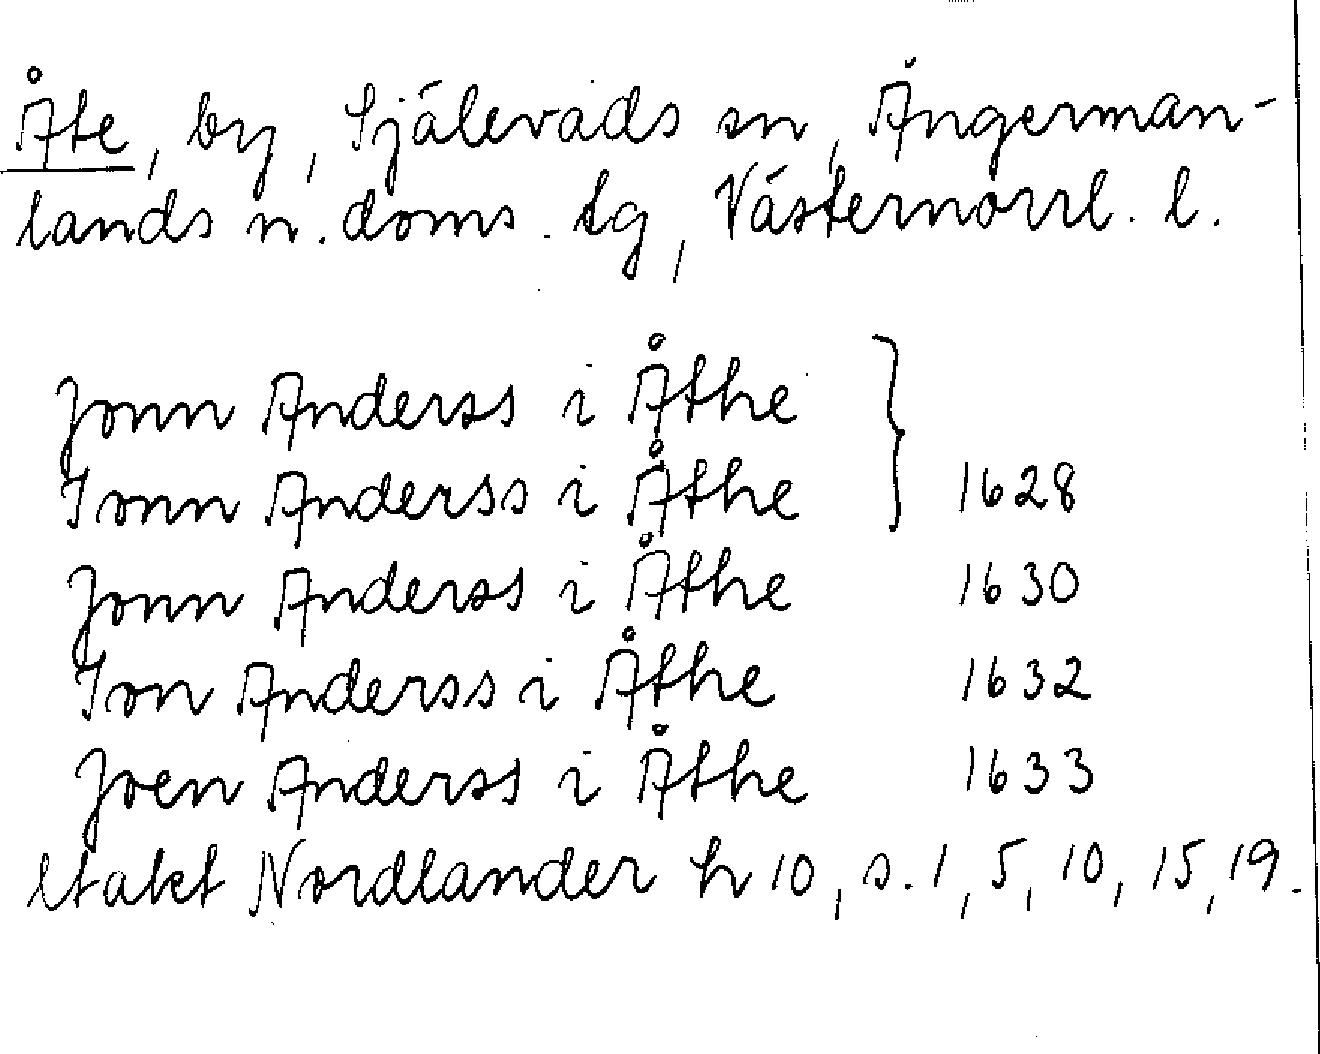 Åte, by, Själevads sn, Ångerman-
lands n. doms. tg, Västernorrl. l.
Jonn Anderss i Åthe
Ionn Anderss i Åthe } 1628
Jonn Anderss i Åthe 1630
Ion Anderss i Åthe 1632
Joen Anderss i Åthe 1633
Utakt Nordlander h 10, s. 1, 5, 10, 15, 19.